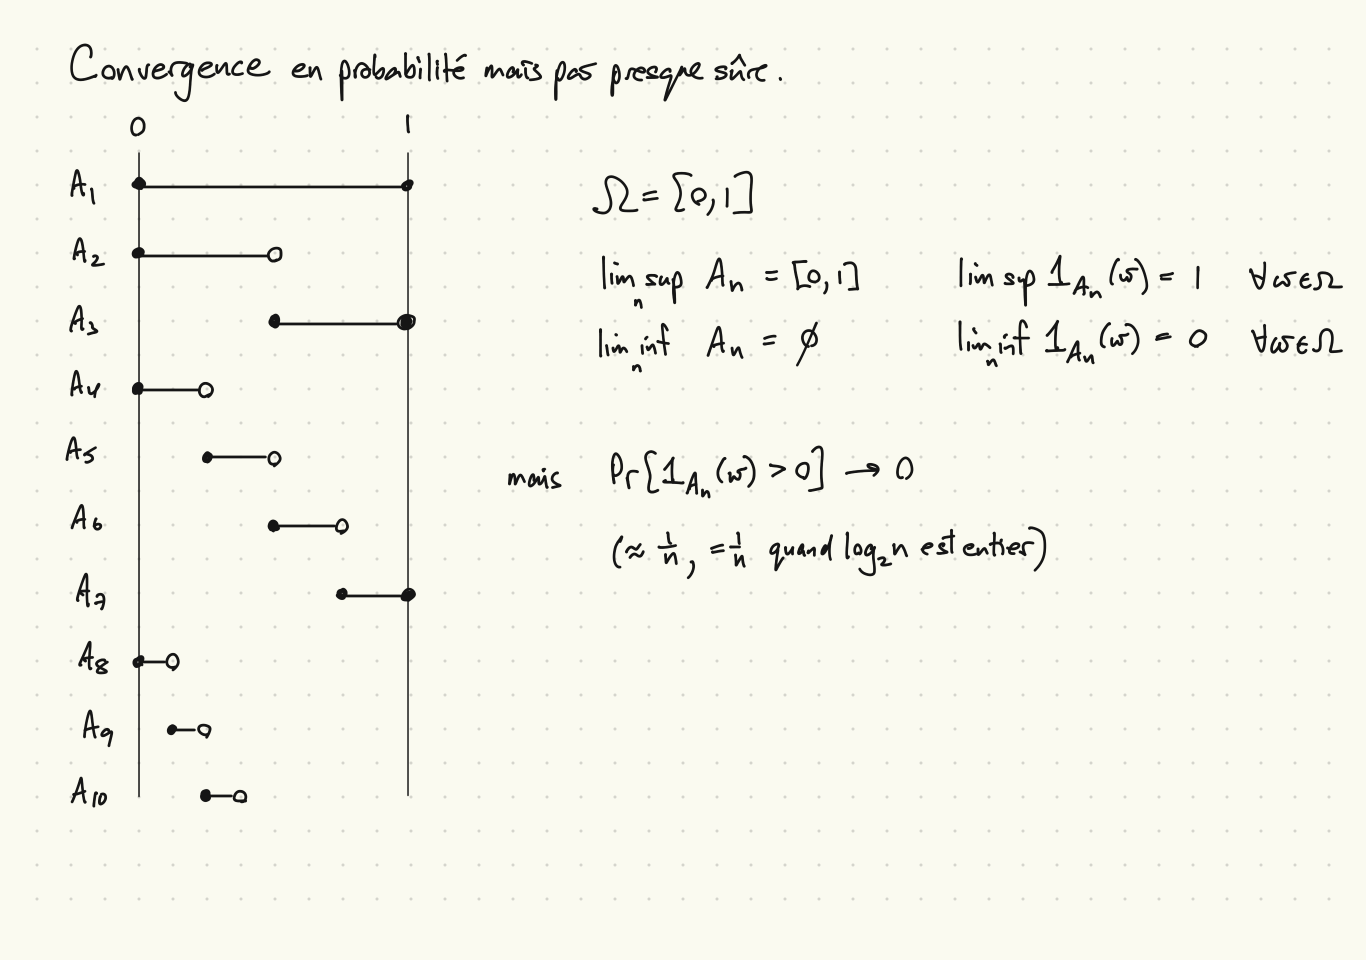 Convergence en probabilité mais pas presque sûre.
0 1
A₁
A₂
A₃
A₄
A₅
A₆
A₇
A₈
A₉
A₁₀
Ω = [0,1]
lim sup Aₙ = [0,1] lim sup 𝟙_Aₙ(ω) = 1 ∀ω∈Ω
n
lim inf Aₙ = ∅ lim inf 𝟙_Aₙ(ω) = 0 ∀ω∈Ω
n n
mais Pr[𝟙_Aₙ(ω) > 0] → 0
(≈ 1/n, = 1/n quand log₂n est entier)